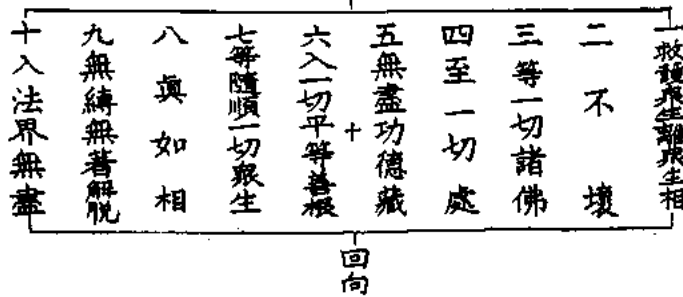 一救護眾生離眾生相
二不壞
三等一切諸佛
四至一切處
五無盡功德藏
六入一切平等善根
七等隨順一切眾生
八真如相
九無縛無著解脱
十入法界無盡
十
回向